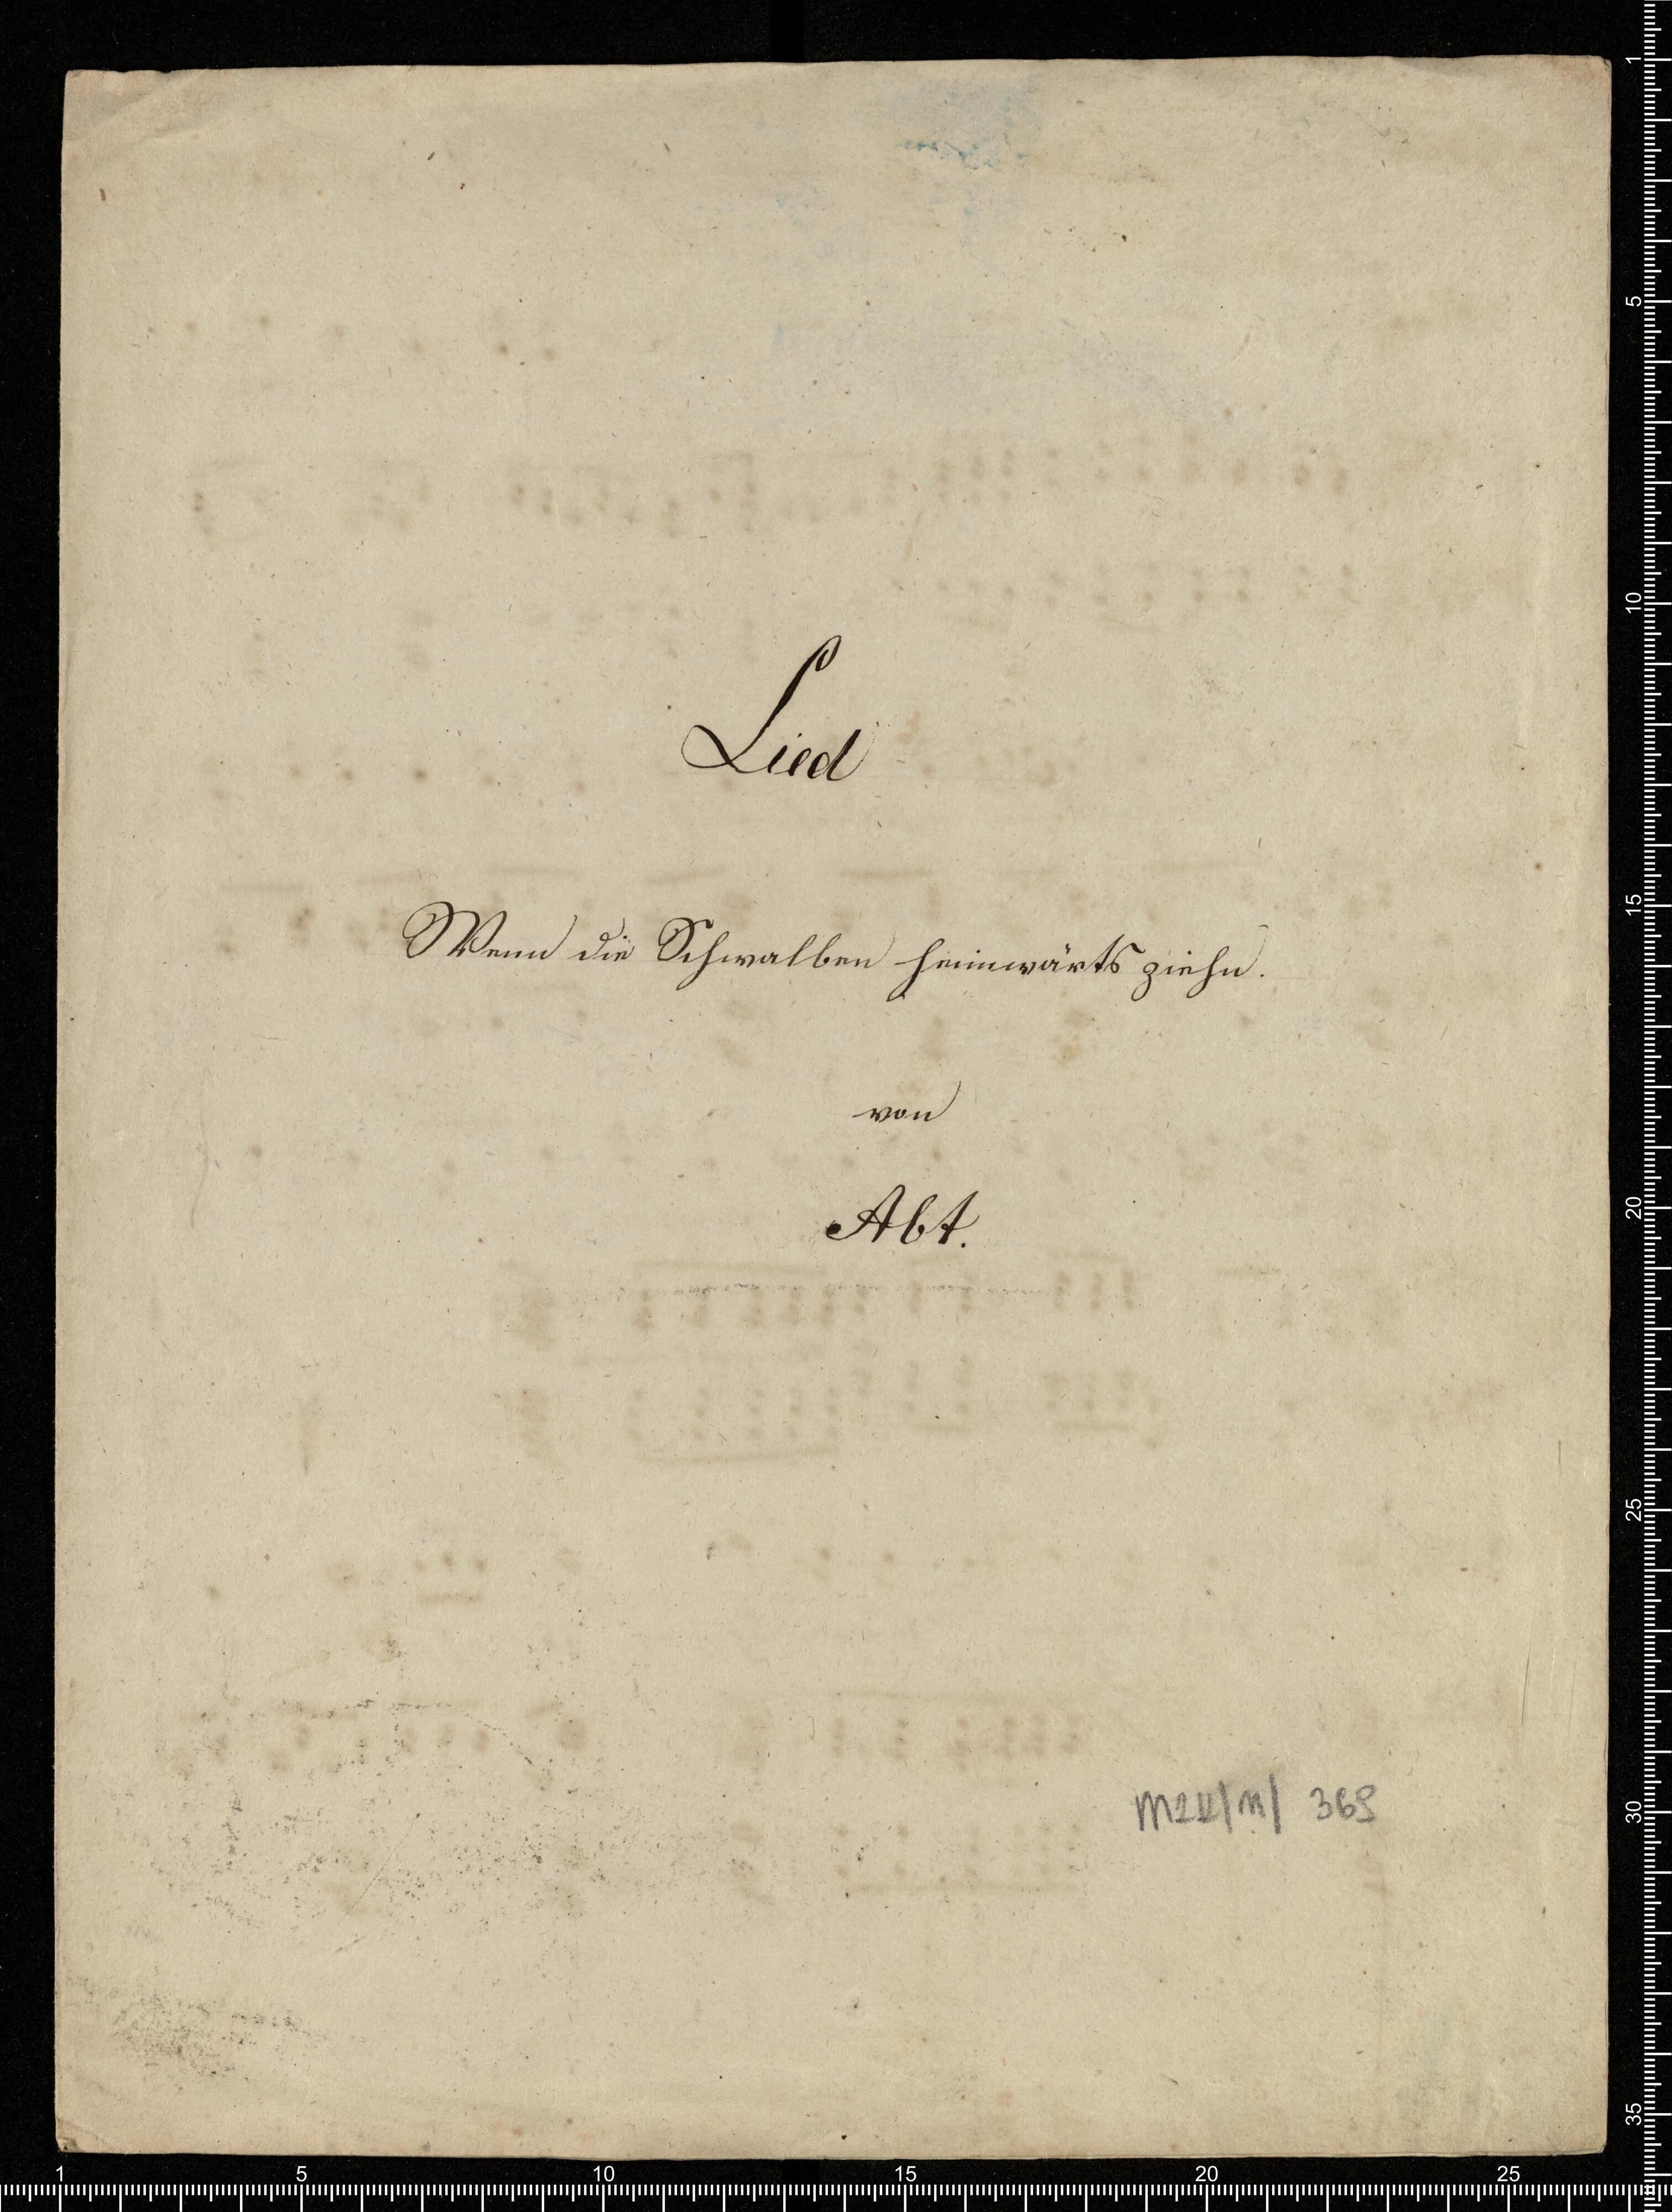 Lied
Wenn die Schwalben heimwärts ziehn.
von
Abt.
369
1
5
10
15
20
25
30
35
1
5
10
15
20
25